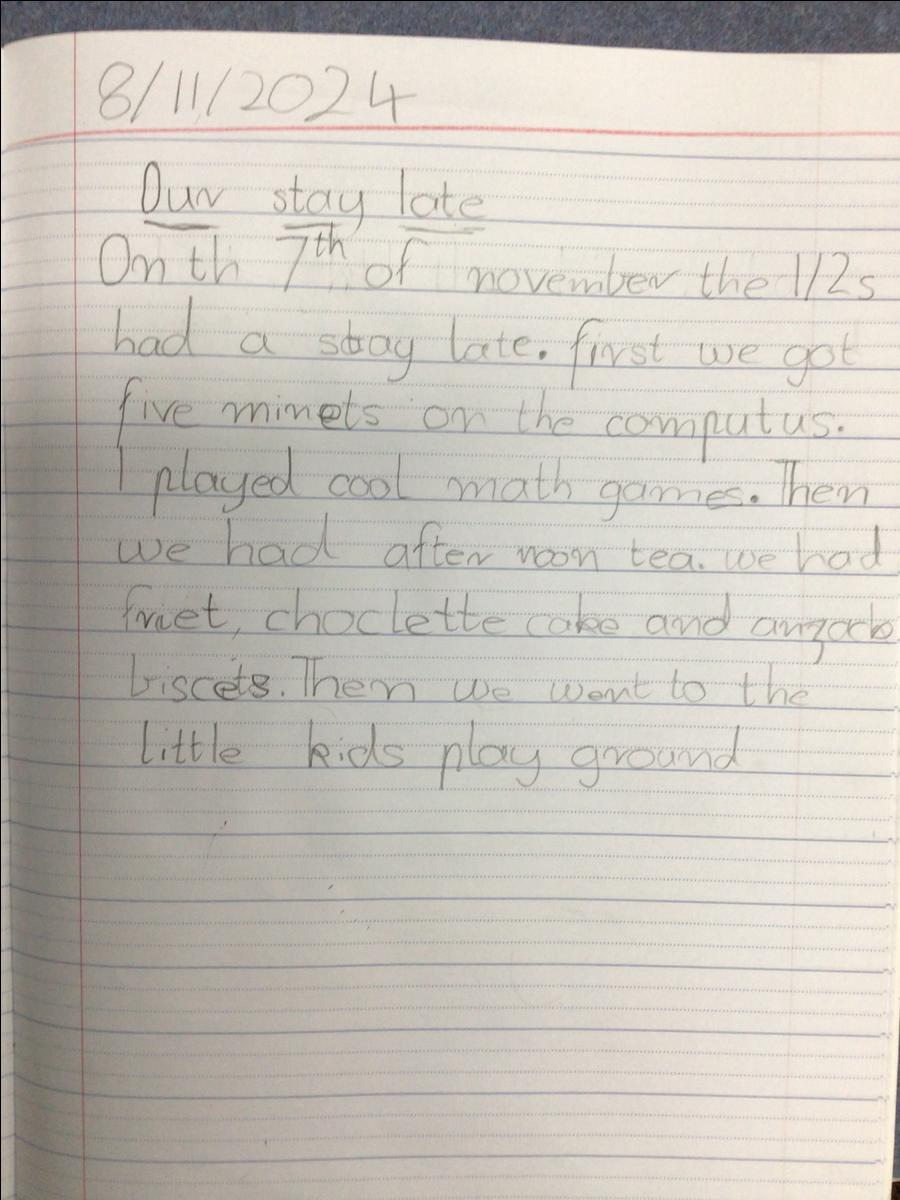 8/11/2024
Our stay late
On th 7th of november the 1/2s
had a stay late. first we got
five minets on the computus.
I played cool math games. Then
we had after noon tea. we had
friet, choclette cake and anzack
biscets. Then we went to the
little kids play ground